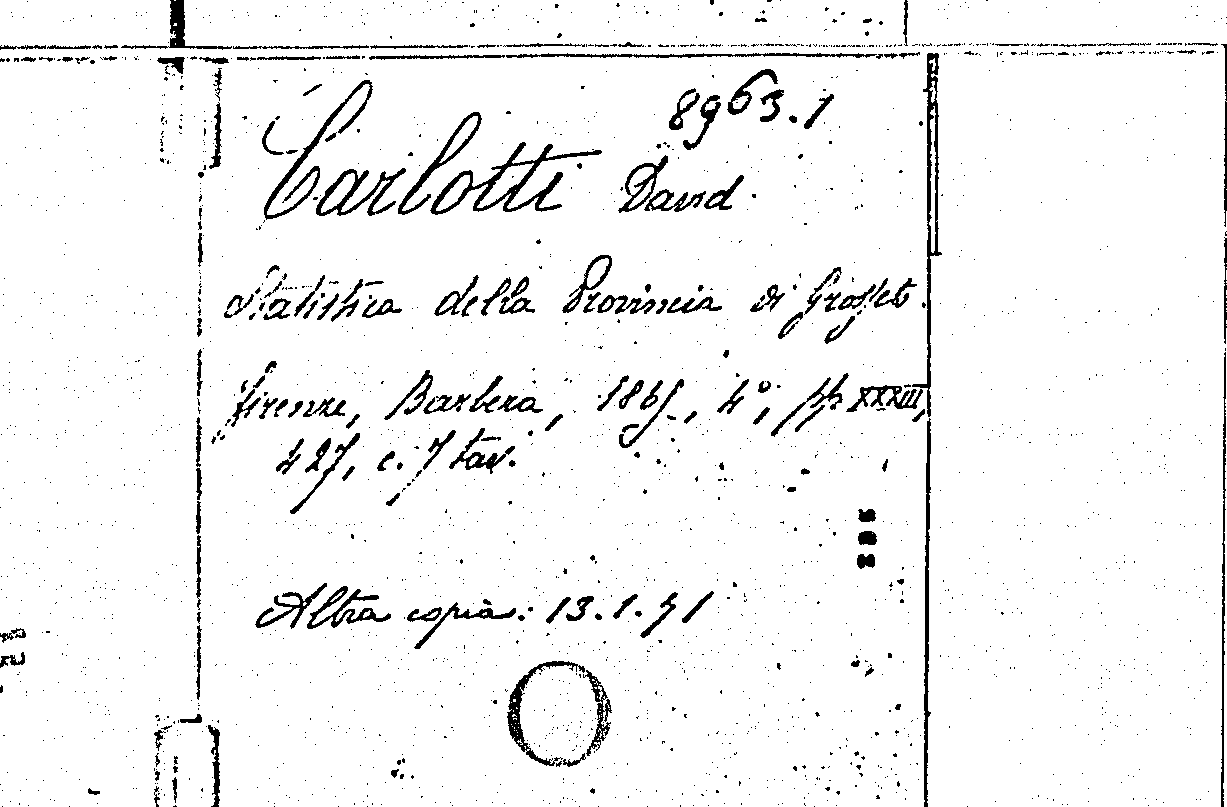 8963.1
Carlotti David.
Statistica della Provincia di Grosseto.
Firenze, Barbera, 1865, 4°, pp XXXIII,
427, c. 7 tav.
Altra copia: 13.1.41